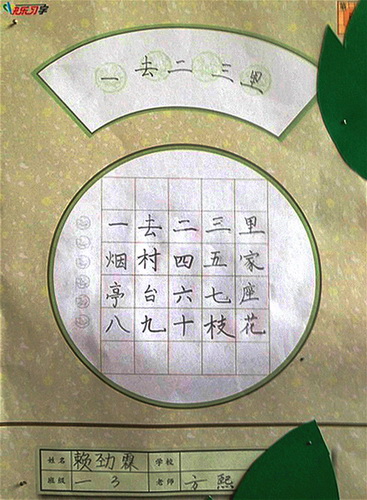 快乐习字
一去二三里
一去二三里
烟村四五家
亭台六七座
八九十枝花
姓名 赖劲霖 学校
班级 一3 老师 方熙